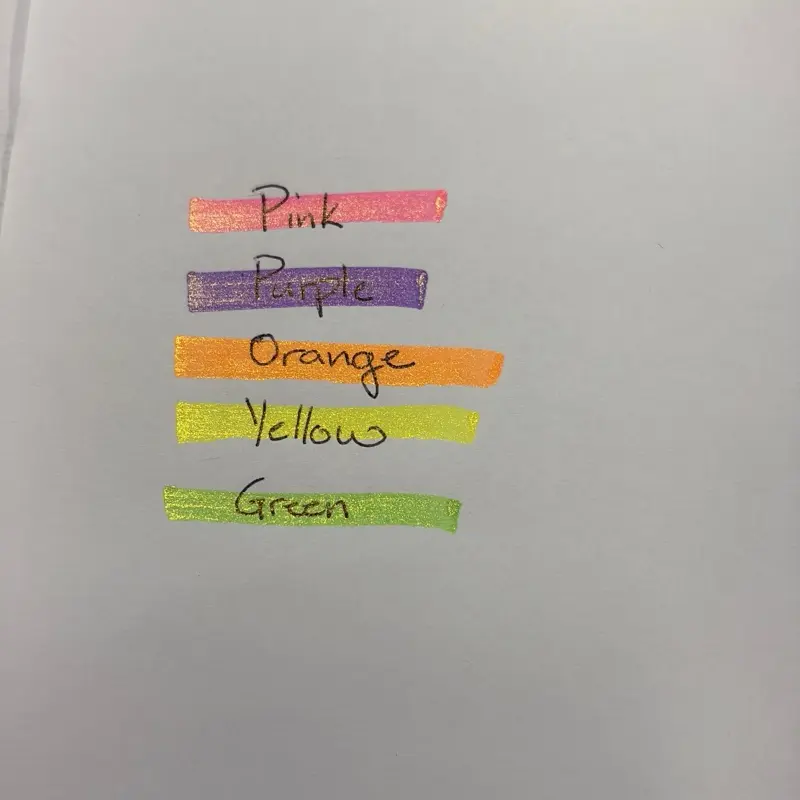 Pink
Purple
Orange
Yellow
Green